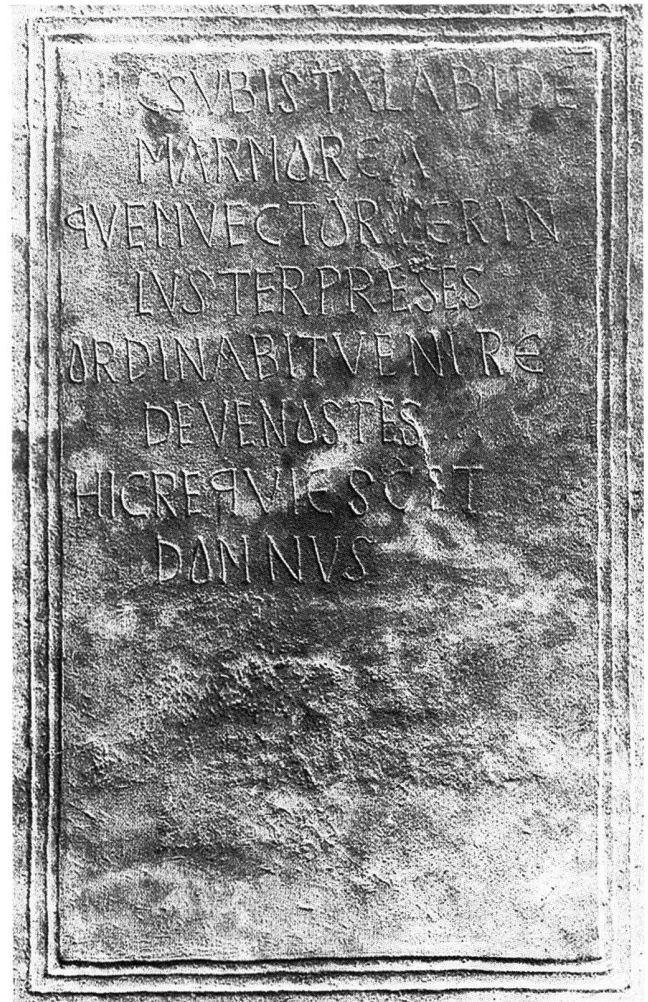 HIC SVB ISTA LABIDE
MARMOREA
QVEM VECTOR VER IN
LVSTER PRESES
ORDINABIT VENIRE
DE VENOSTES
HIC REQVIESCIT
DOMNVS